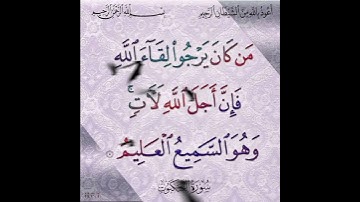 أعوذ بالله من الشيطان الرجيم
بسم الله الرحمن الرحيم
مَن كَانَ يَرْجُواْ لِقَآءَ ٱللَّهِ
فَإِنَّ أَجَلَ ٱللَّهِ لَأٓتٖۚ
وَهُوَ ٱلسَّمِيعُ ٱلْعَلِيمُ
سُورَة